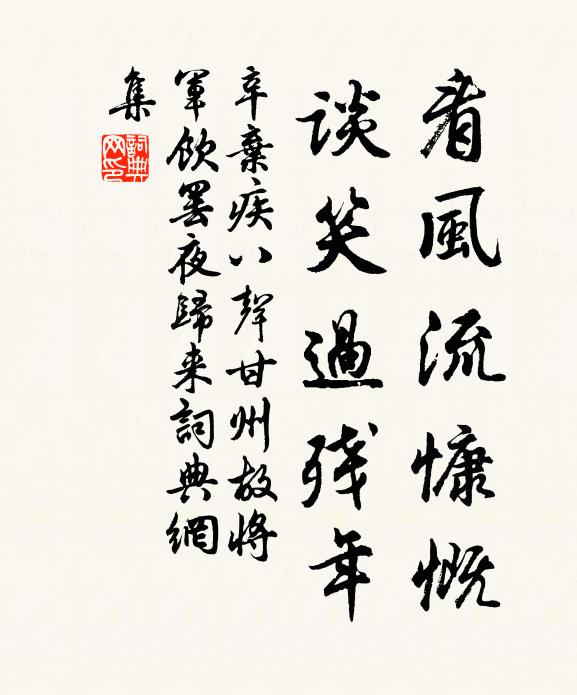 看風流慷慨
談笑過殘年
辛棄疾八聲甘州故將
軍飲罷夜歸来詞典網
集
詞典
网印